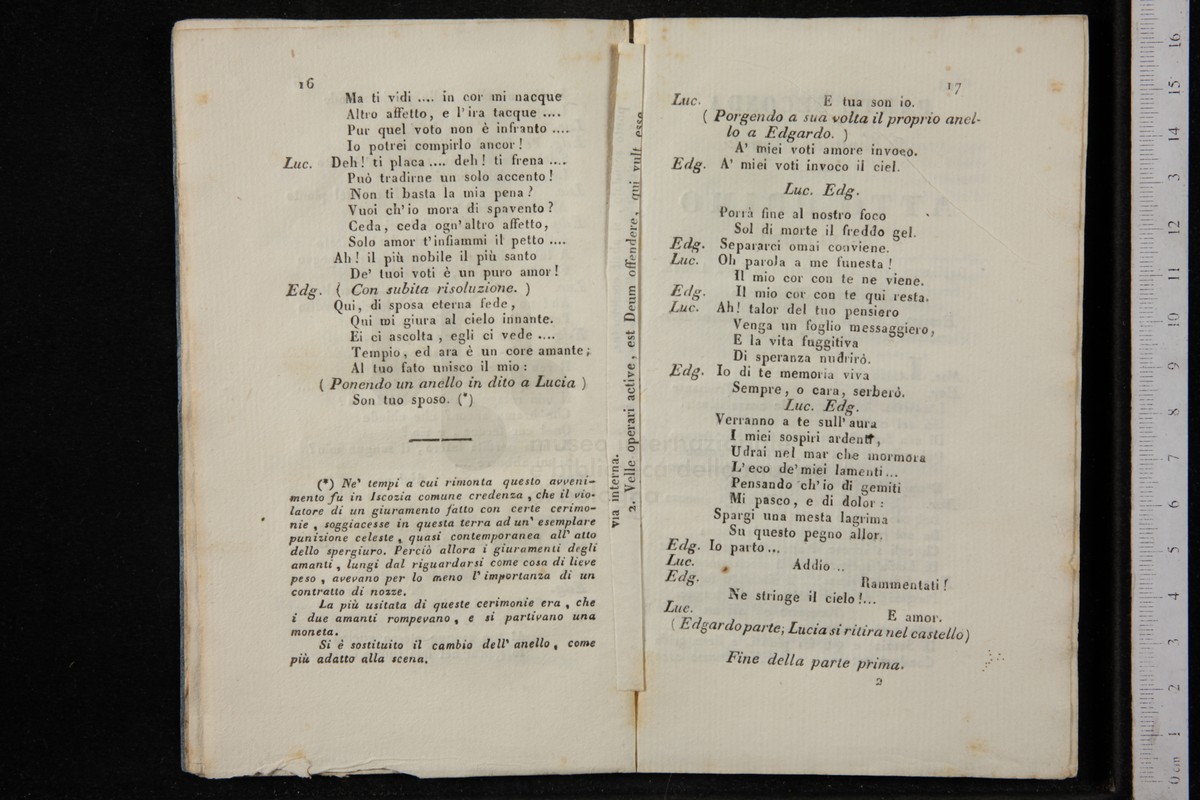 16
Ma ti vidi .... in cor mi nacque
Altro affetto, e l'ira tacque ....
Pur quel voto non è infranto ....
Io potrei compirlo ancor!
Luc. Deh! ti placa .... deh! ti frena ....
Può tradirne un solo accento!
Non ti basta la mia pena?
Vuoi ch'io mora di spavento?
Ceda, ceda ogn'altro affetto,
Solo amor t'infiammi il petto ....
Ah! il più nobile il più santo
De' tuoi voti è un puro amor!
Edg. ( Con subita risoluzione. )
Qui, di sposa eterna fede,
Qui mi giura al cielo innante.
Ei ci ascolta, egli ci vede ....
Tempio, ed ara è un core amante;
Al tuo fato unisco il mio:
( Ponendo un anello in dito a Lucia )
Son tuo sposo. (*)
(*) Ne' tempi a cui rimonta questo avveni-
mento fu in Iscozia comune credenza, che il vio-
latore di un giuramento fatto con certe cerimo-
nie, soggiacesse in questa terra ad un' esemplare
punizione celeste, quasi contemporanea all' atto
dello spergiuro. Perciò allora i giuramenti degli
amanti, lungi dal riguardarsi come cosa di lieve
peso, avevano per lo meno l' importanza di un
contratto di nozze.
La più usitata di queste cerimonie era, che
i due amanti rompevano, e si partivano una
moneta.
Si è sostituito il cambio dell' anello, come
più adatto alla scena.
via interna.
2. Velle operari active, est Deum offendere, qui vult esse
17
Luc. E tua son io.
( Porgendo a sua volta il proprio anel-
lo a Edgardo. )
A' miei voti amore invoco.
Edg. A' miei voti invoco il ciel.
Luc. Edg.
Porrà fine al nostro foco
Sol di morte il freddo gel.
Edg. Separarci omai conviene.
Luc. Oh parola a me funesta!
Il mio cor con te ne viene.
Edg. Il mio cor con te qui resta.
Luc. Ah! talor del tuo pensiero
Venga un foglio messaggiero,
E la vita fuggitiva
Di speranza nudrirò.
Edg. Io di te memoria viva
Sempre, o cara, serberò.
Luc. Edg.
Verranno a te sull'aura
I miei sospiri ardenti,
Udrai nel mar che mormora
L'eco de'miei lamenti...
Pensando ch'io di gemiti
Mi pasco, e di dolor:
Spargi una mesta lagrima
Su questo pegno allor.
Edg. Io parto...
Luc. Addio ..
Edg. Rammentati!
Ne stringe il cielo!...
Luc. E amor.
( Edgardo parte; Lucia si ritira nel castello )
Fine della parte prima.
2
museo internazio
e biblioteca della
0 cm 1 2 3 4 5 6 7 8 9 10 11 12 13 14 15 16